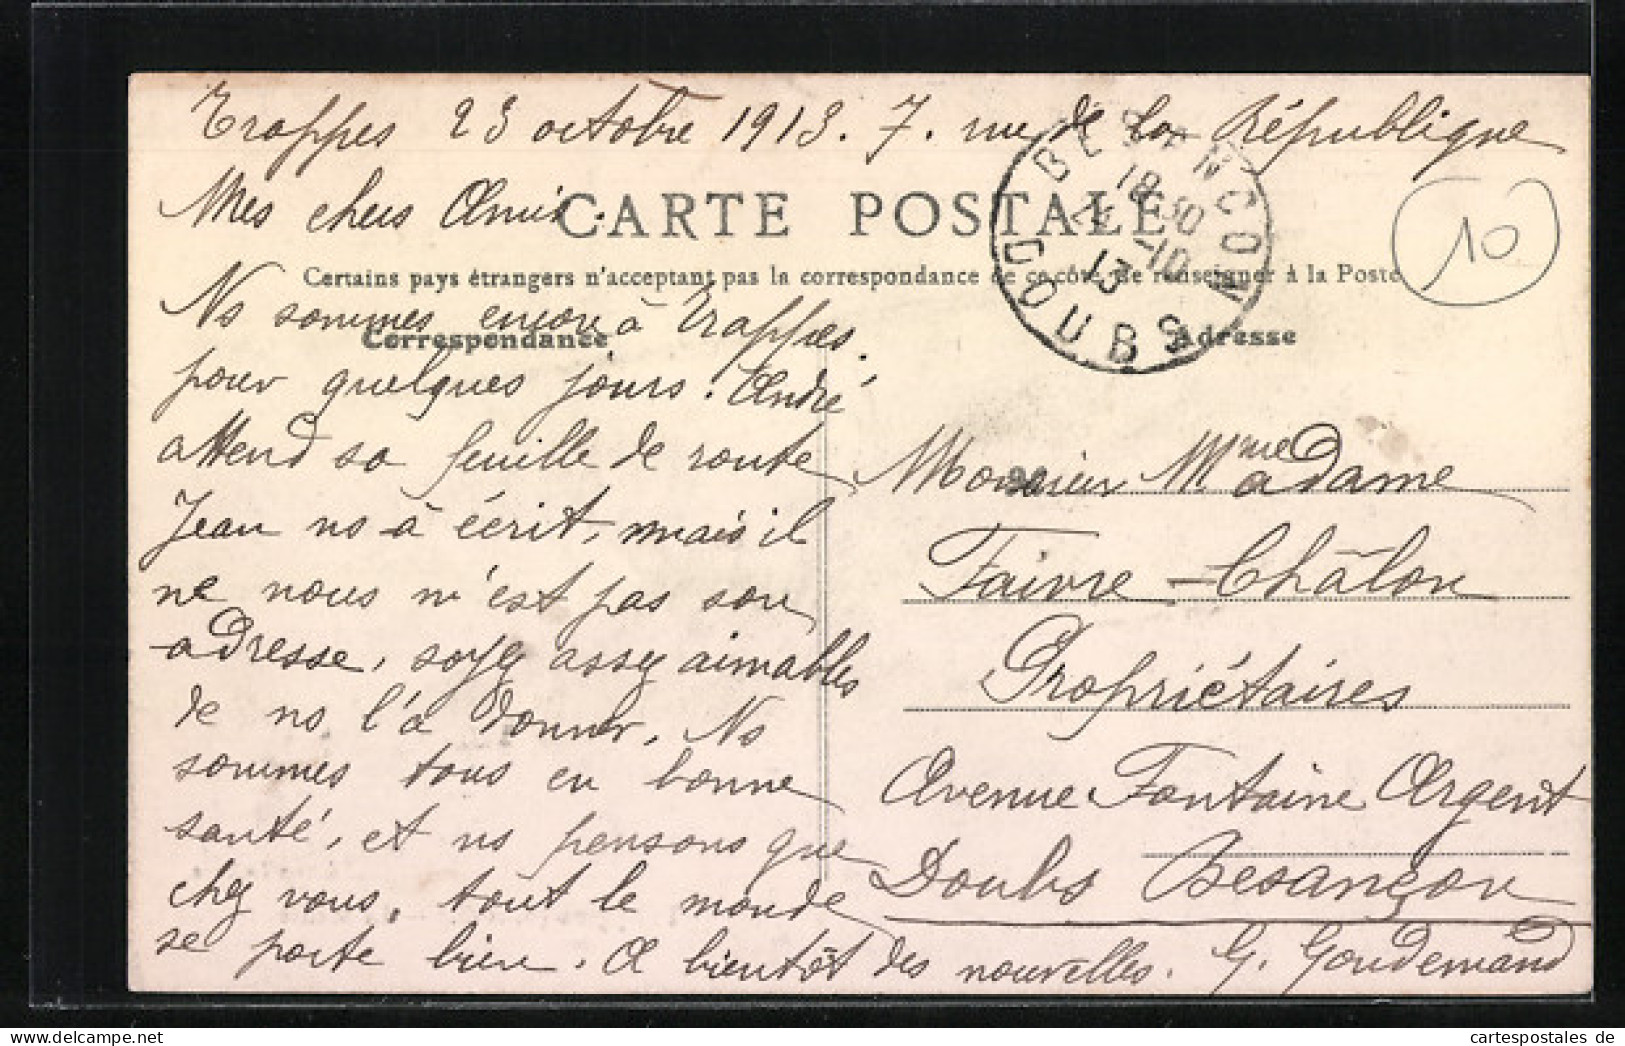 Trappes 23 octobre 1913. 7. rue de la République
Mes chers Amis.
CARTE POSTALE
Certains pays étrangers n'acceptant pas la correspondance de ce côté, se renseigner à la Poste
Correspondance
Ns sommes encore à Trappes.
pour quelques jours. André
attend sa feuille de route
Jean ns à écrit, mais il
ne nous m'est pas son
adresse, soyez assez aimables
de ns l'a donner. Ns
sommes tous en bonne
santé, et ns pensons que
chez vous, tout le monde
se porte bien. A bientôt des nouvelles. G. Goudemand
BESANCON
18 30
24 -10
13
DOUBS
10
Adresse
Monsieur Mme adame
Faivre - Châlon
Propriétaires
Avenue Fontaine Argent
Doubs Besançon
cartespostales.de